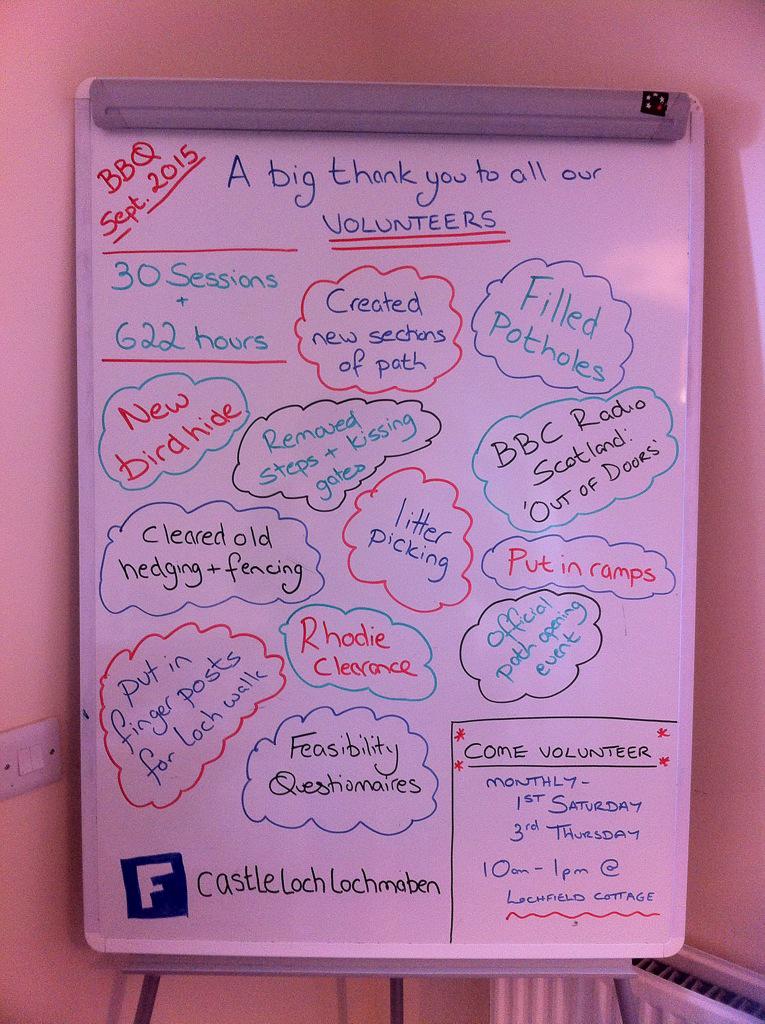 BBQ
Sept. 2015
A big thank you to all our
VOLUNTEERS
30 Sessions
+
622 hours
Created
new sections
of path
Filled
Potholes
New
birdhide
Removed
steps + kissing
gates
BBC Radio
Scotland:
'OUT OF DOORS'
Cleared old
hedging + fencing
litter
picking
Put in ramps
Rhodie
Clearance
Official
path opening
event
Put in
finger posts
for Loch walk
Feasibility
Questionnaires
COME VOLUNTEER
MONTHLY -
1ST SATURDAY
3rd THURSDAY
10am - 1pm @
LOCHFIELD COTTAGE
F CastleLochLochmaben